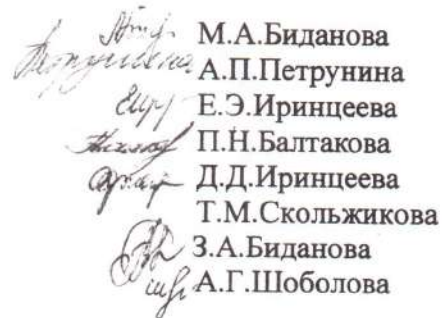 М.А.Биданова
Петрунина А.П.Петрунина
Е.Э.Иринцеева
П.Н.Балтакова
Д.Д.Иринцеева
Т.М.Скольжикова
З.А.Биданова
А.Г.Шоболова